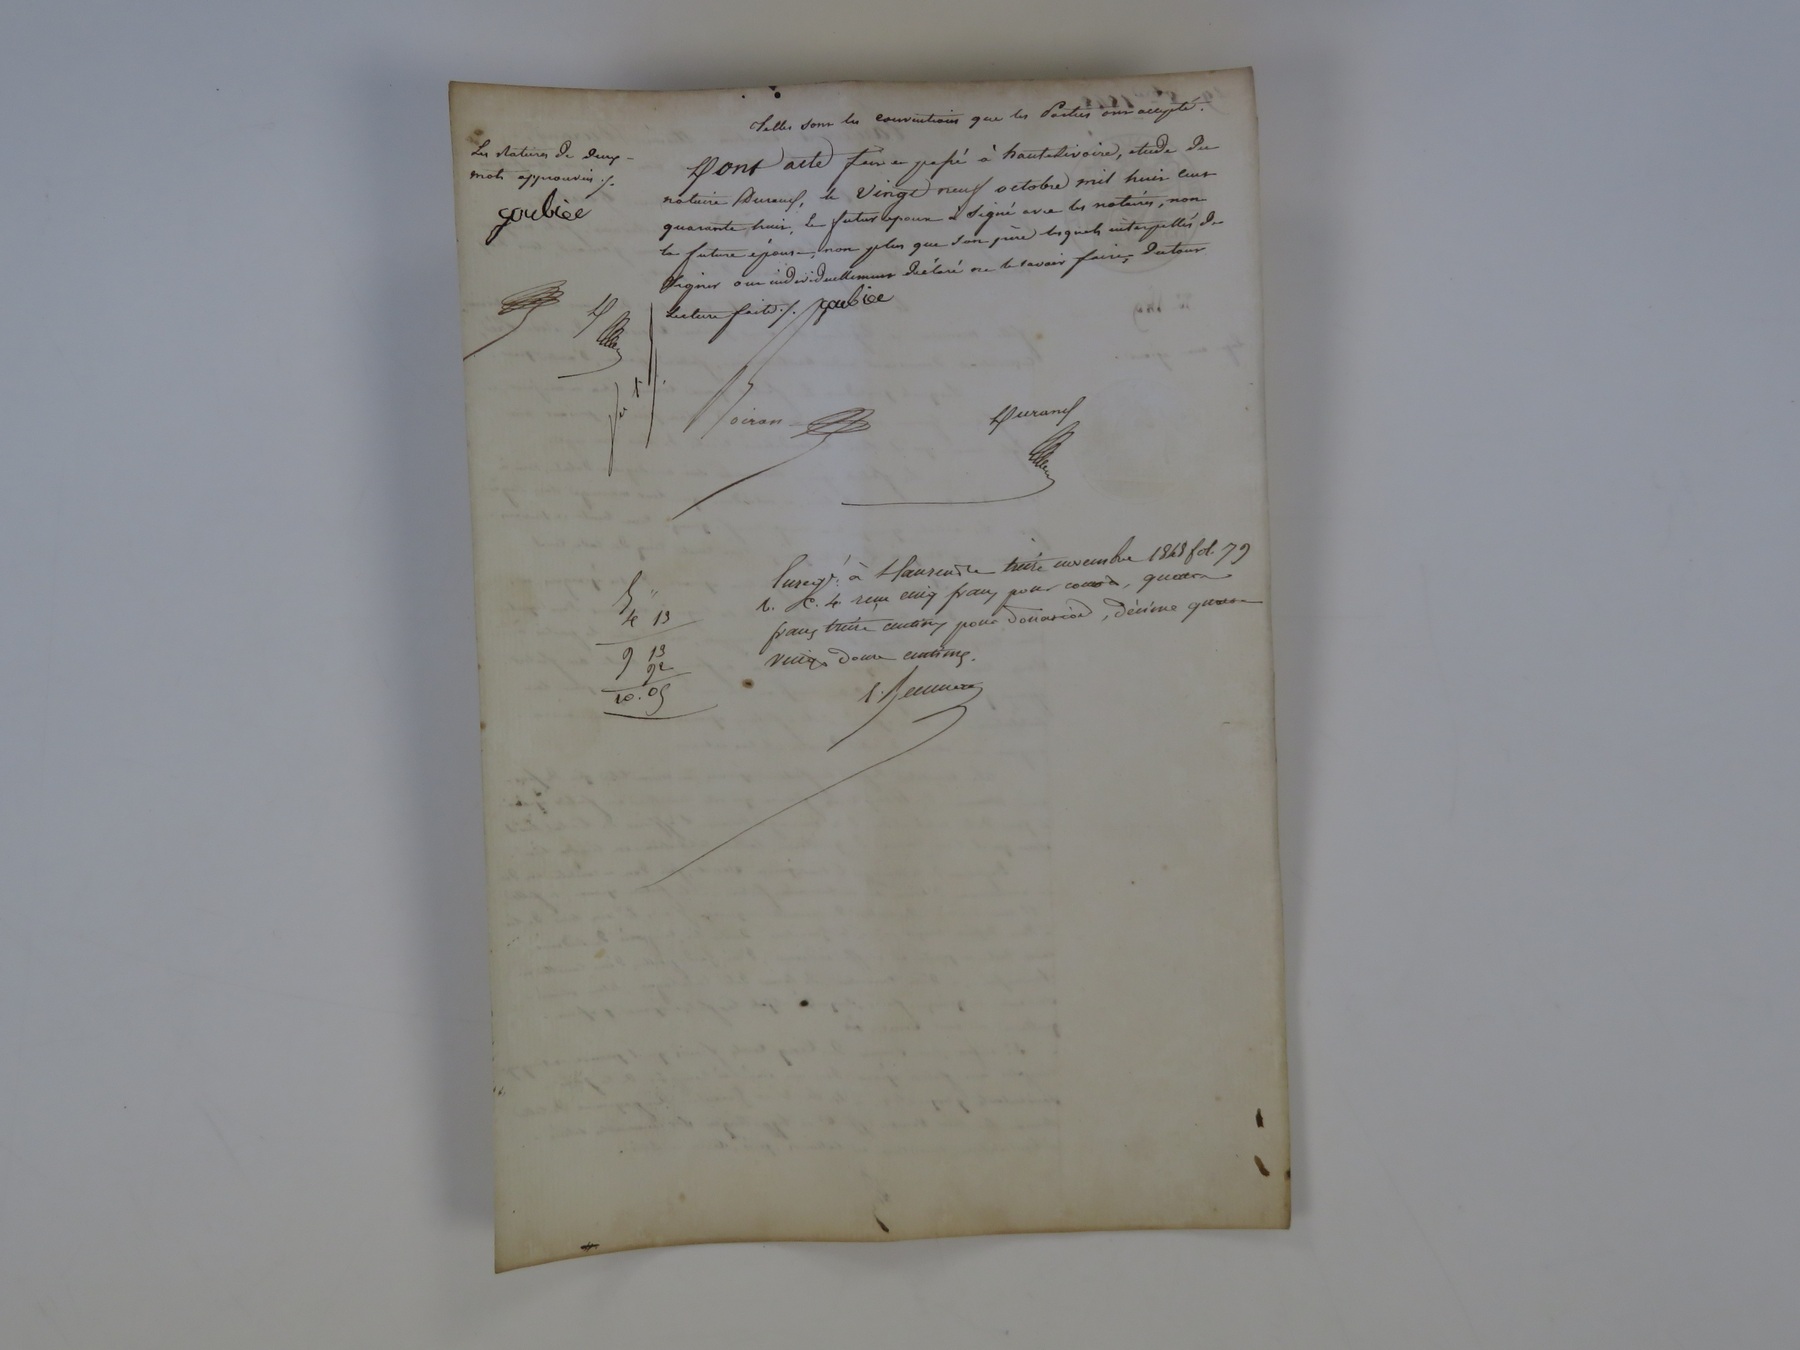 Telles sont les conventions que les Parties ont accepté.
Les ratures de deux
mots approuvés ./.
goubiee
Dont acte fait et passé à hauterivoire, étude du
notaire Durand, le vingt neuf octobre mil huit cent
quarante huit, le futur époux a signé avec les notaires, non
la future épouse, non plus que son père lesquels interpellés de
signer ont individuellement déclaré ne le savoir faire, du tout
lecture faite ./. goubiee
D
Noiran
Durand
Enregé. à St Laurent de treize novembre 1848 fol. 79
v. c. 4 reçu cinq francs pour quatre
francs treize centimes pour donation, décime quatre
vingt douze centimes.
5 "
4 13
9 13
92
10.05